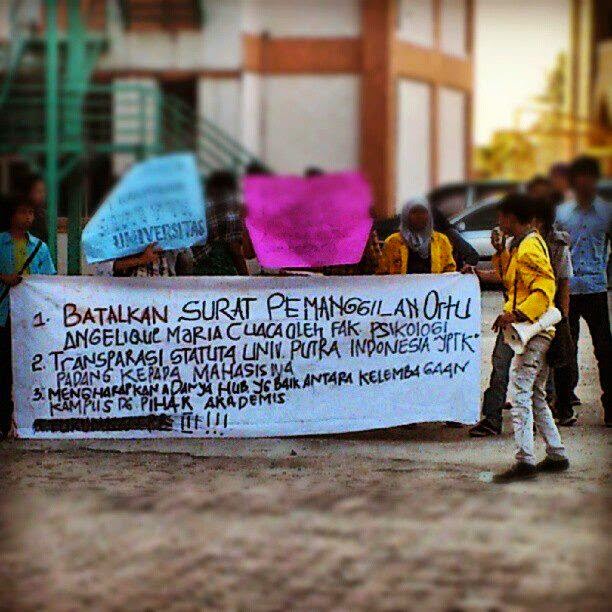 UNIVERSITAS
1. BATALKAN SURAT PEMANGGILAN ORTU
ANGELIQUE MARIA CUACA OLEH FAK. PSIKOLOGI
2. TRANSPARASI STATUTA UNIV. PUTRA INDONESIA "YPTK"
PADANG KEPADA MAHASISWA
3. MENGHARAPKAN ADANYA HUB YG BAIK ANTARA KELEMBAGAAN
KAMPUS DG PIHAK AKADEMIS
!!! !!!